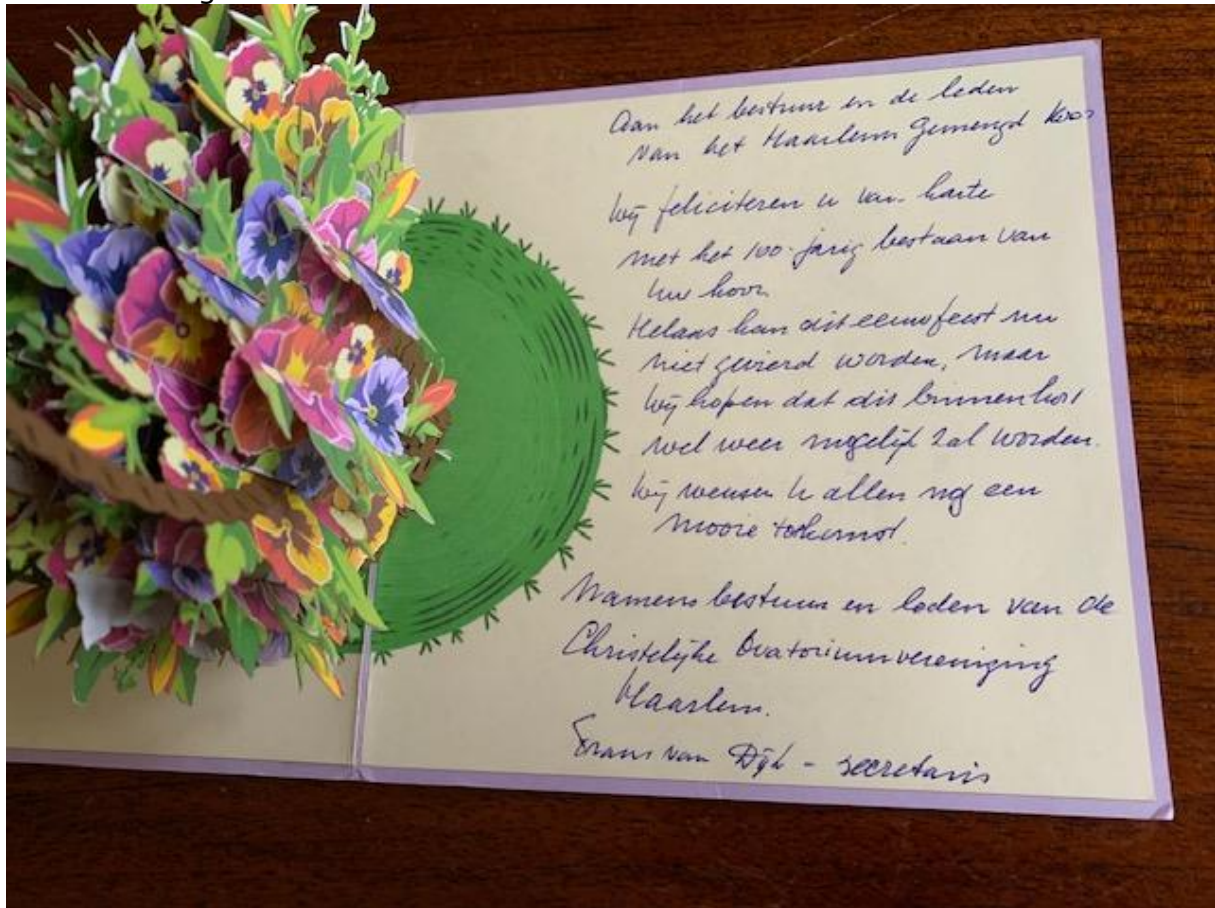 Aan het bestuur en de leden
van het Haarlems Gemengd Koor
Wij feliciteren u van harte
met het 100-jarig bestaan van
uw koor.
Helaas kan dit eeuwfeest nu
niet gevierd worden, maar
wij hopen dat dit binnenkort
wel weer mogelijk zal worden.
Wij wensen u allen nog een
mooie toekomst.
Namens bestuur en leden van de
Christelijke Oratoriumvereniging
Haarlem.
Frans van Dijk - secretaris